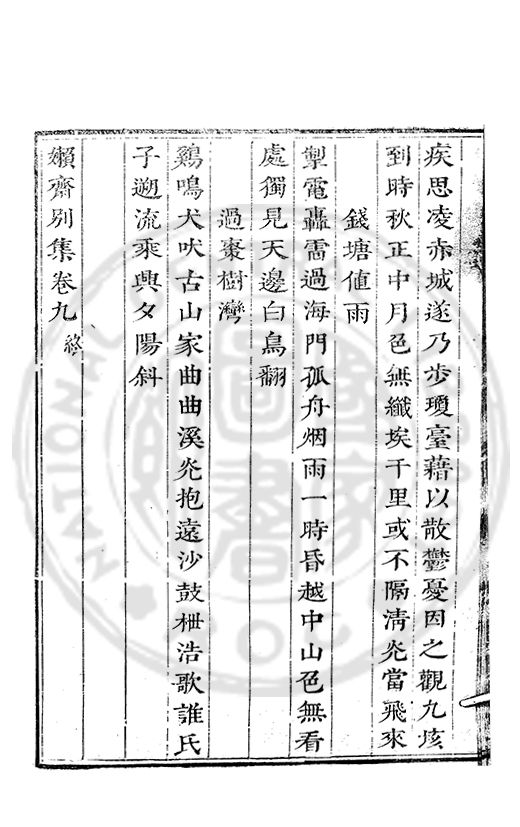 疾思凌赤城遂乃步瓊臺藉以散鬱憂因之觀九垓
到時秋正中月色無纖埃千里或不隔清光當飛來
錢塘値雨
掣電轟雷過海門孤舟烟雨一時昏越中山色無看
處獨見天邊白鳥翻
過棗樹灣
鷄鳴犬吠古山家曲曲溪光抱遠沙鼓枻浩歌誰氏
子遡流乘興夕陽斜
嬾齋別集卷九 終